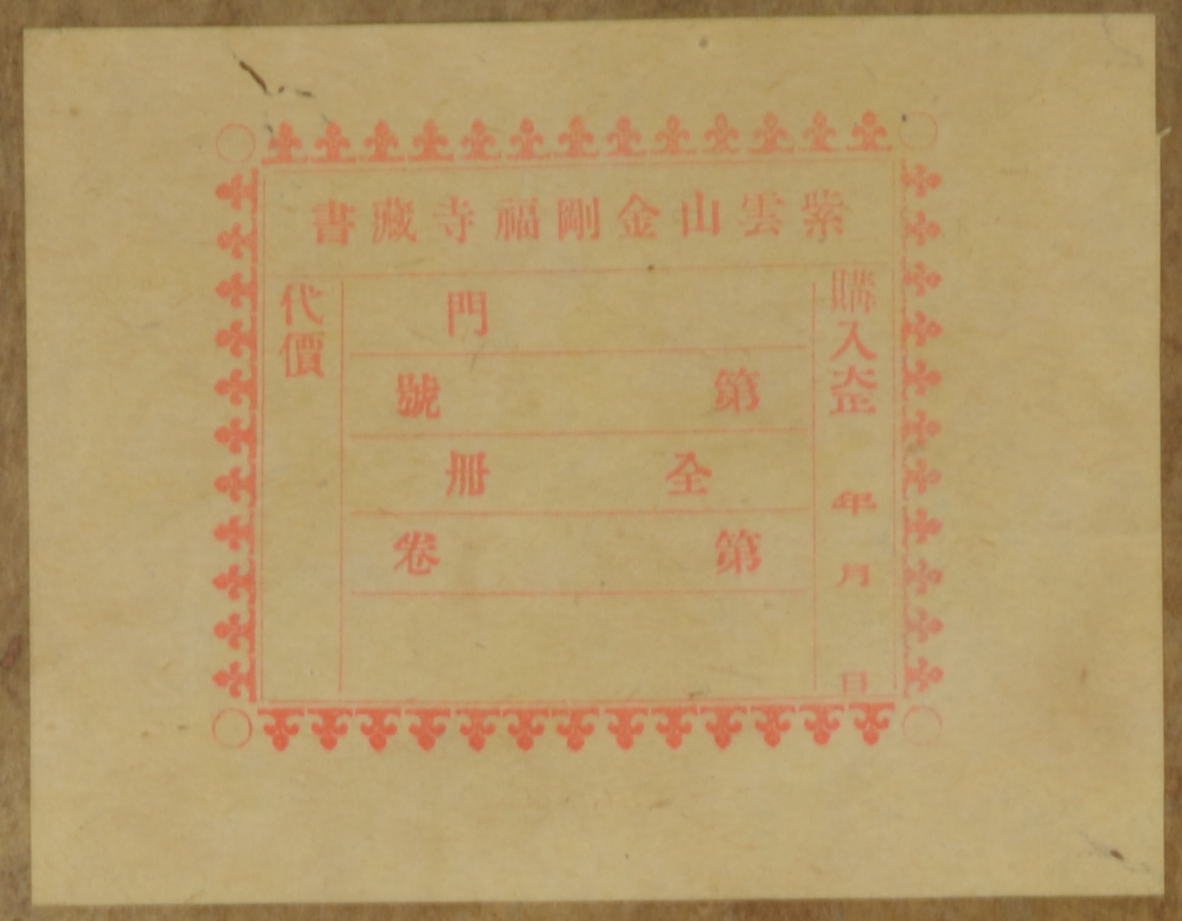 紫雲山金剛福寺藏書
購入大正 年 月 日
門
第 號
全 冊
第 卷
代價